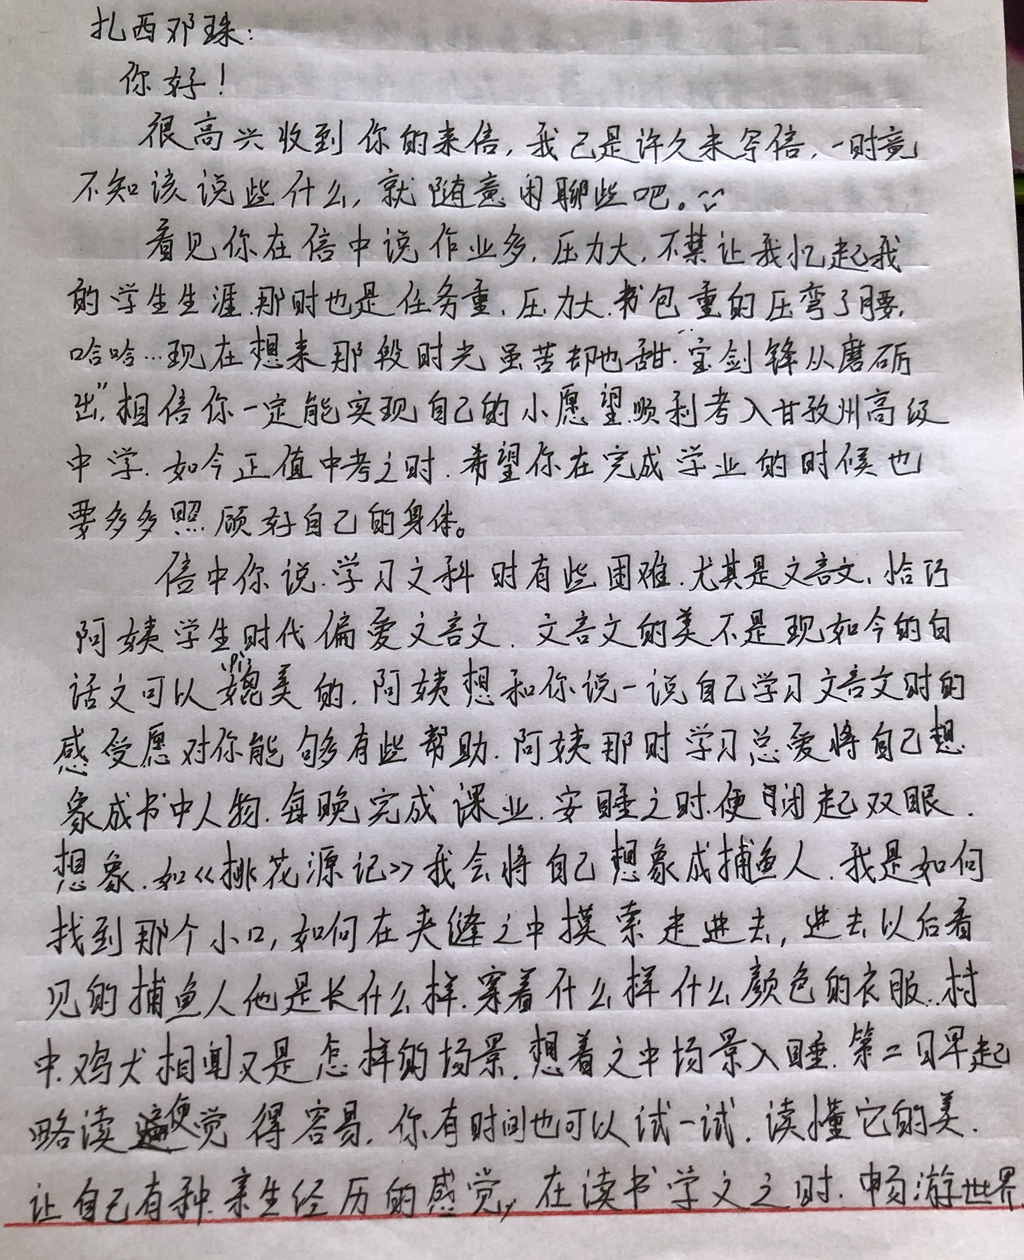 扎西邓珠：
你好！
很高兴收到你的来信，我已是许久未写信，一时竟
不知该说些什么，就随意闲聊些吧。
看见你在信中说作业多，压力大，不禁让我忆起我
的学生生涯，那时也是任务重，压力大，书包重的压弯了腰，
哈哈…现在想来那段时光虽苦却也甜，“宝剑锋从磨砺
出”，相信你一定能实现自己的小愿望，顺利考入甘孜州高级
中学，如今正值中考之时，希望你在完成学业的时候也
要多多照顾好自己的身体。
信中你说，学习文科时有些困难，尤其是文言文，恰巧
阿姨学生时代偏爱文言文，文言文的美不是现如今的白
话文可以媲pì美的，阿姨想和你说一说自己学习文言文时的
感受愿对你能够有些帮助，阿姨那时学习总爱将自己想
象成书中人物，每晚完成课业，安睡之时，便闭起双眼，
想象，如《桃花源记》我会将自己想象成捕鱼人，我是如何
找到那个小口，如何在夹缝之中摸索走进去，进去以后看
见的捕鱼人他是长什么样，穿着什么样什么颜色的衣服，村
中鸡犬相闻又是怎样的场景，想着文中场景入睡，第二日早起
略读便觉得容易，你有时间也可以试一试，读懂它的美，
让自己有种亲生经历的感觉，在读书学文之时，畅游世界，